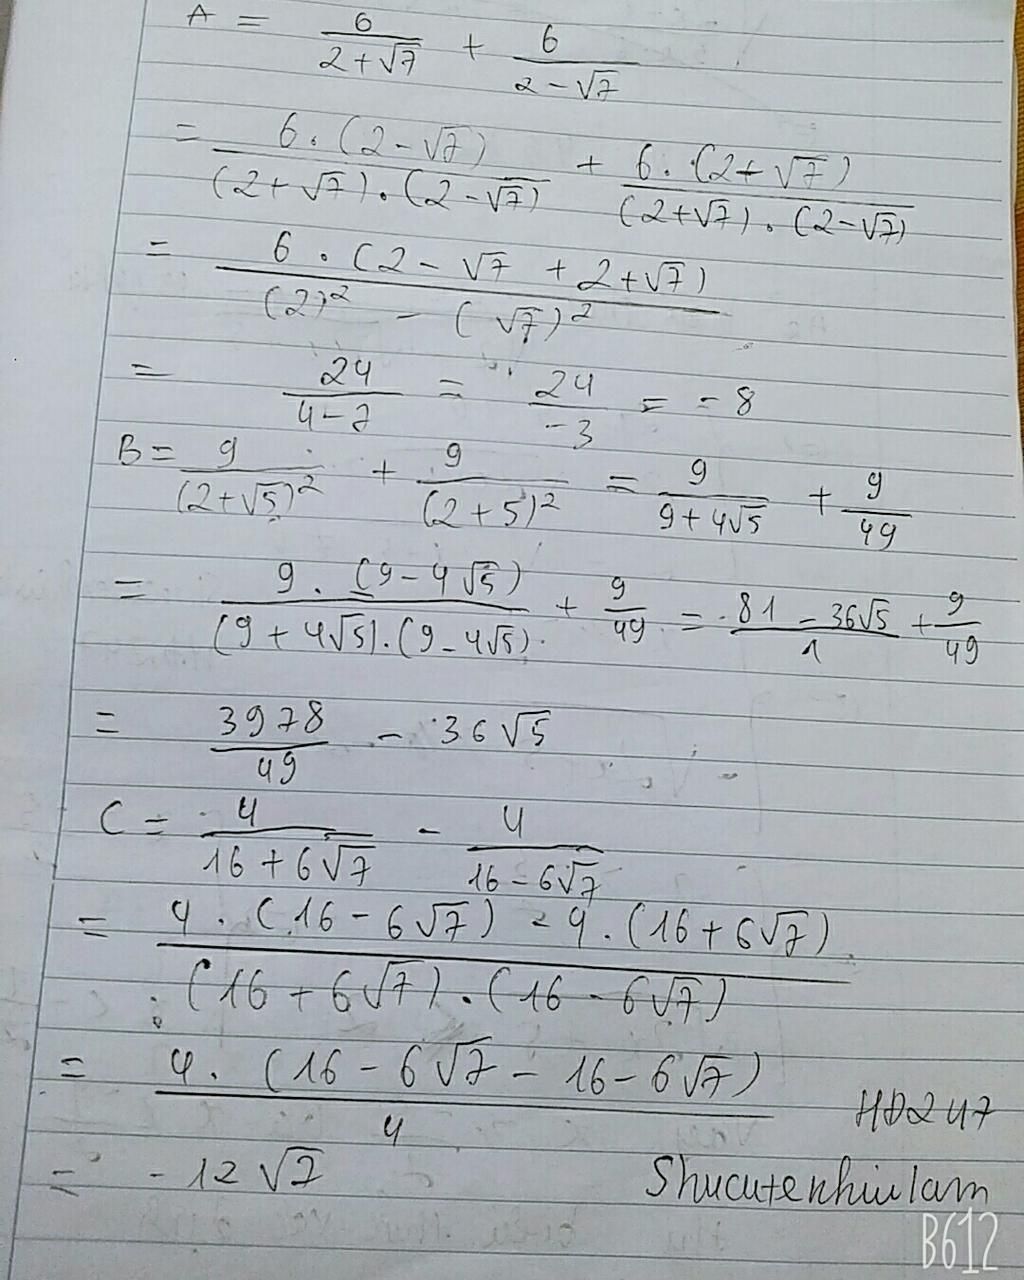 A = 6/(2+√7) + 6/(2-√7)
= 6.(2-√7)/((2+√7).(2-√7)) + 6.(2+√7)/((2+√7).(2-√7))
= 6.(2-√7+2+√7)/((2)²-(√7)²)
= 24/(4-7) = 24/-3 = -8
B = 9/(2+√5)² + 9/(2+5)² = 9/(9+4√5) + 9/49
= 9.(9-4√5)/((9+4√5).(9-4√5)) + 9/49 = (81-36√5)/1 + 9/49
= 3978/49 - 36√5
C = 4/(16+6√7) - 4/(16-6√7)
= (4.(16-6√7)-4.(16+6√7))/((16+6√7).(16-6√7))
= 4.(16-6√7-16-6√7)/4
= -12√7
HD247
Shucutenhiulam
B612